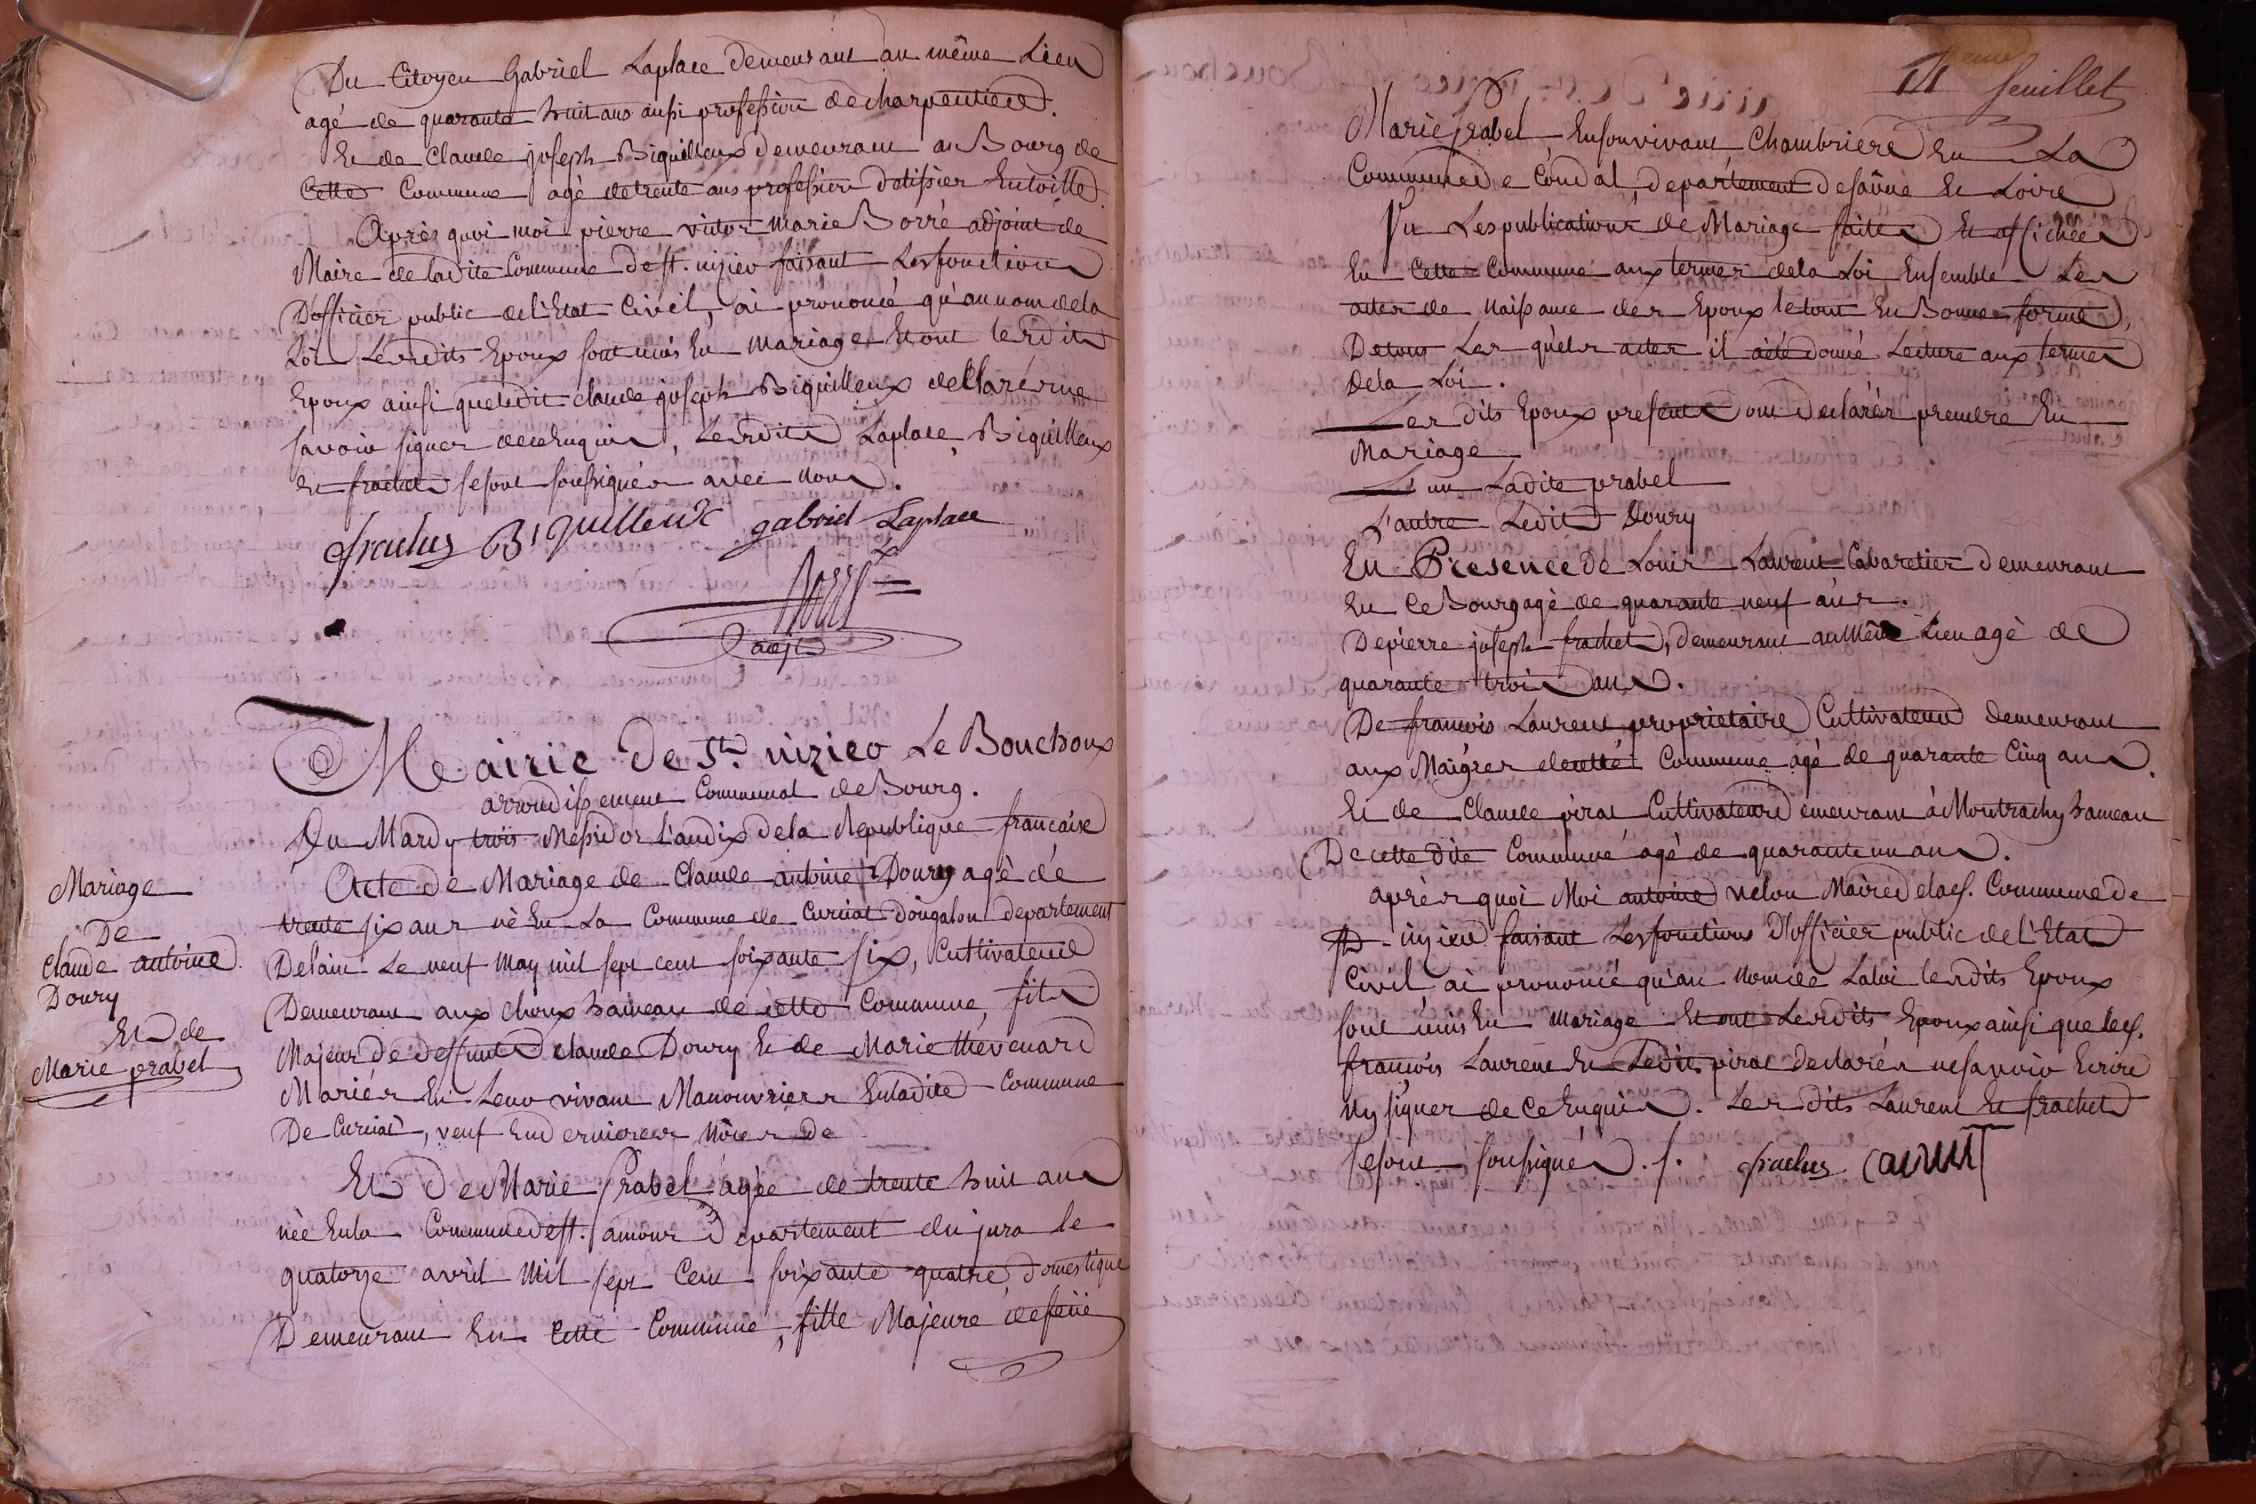 Du Citoyen Gabriel Laplace demeurant au même Lieu
agé de quarante huit ans aussi profession de charpentier.
Et de Claude joseph Biquilleux demeurant au Bourg de
Cette Commune agé de trente ans profession de tissier En toille
Après quoi moi pierre victor marie Borré adjoint de
Maire de ladite Commune de st. nizier faisant Les fonctions
D'officier public de l'Etat Civil, ai prononcé qu'au nom de la
Loi Lesdits Epoux sont unis En mariage Et ont lesdits
Epoux ainsi que ledit claude joseph Biquilleux declaré ne
savoir signer de ce Enquis, Lesdits Laplace, Biquilleux
Et frachet se sont soussignés avec Nous.
frachet Biquilleux gabriel Laplace
Borré
adjt
Mairie de St. nizier Le Bouchoux
arrondissement Communal de Bourg.
Du Mardy trois Messidor l'an dix de la Republique francaise
Acte de Mariage de Claude antoine Doury agè dé
trente six ans né En La Commune de Curciat Dongalon departement
Delain Le neuf may mil sept cent soixante six, Cultivateur
Demeurant aux choux hameau de cette Commune, fils
Majeur de deffunts Claude Doury Et de Marie thévenard
Mariés En Leur vivant Manouvriers En ladite Commune
De Curciat, veuf En dernieres Nôces de
Et De Marie Prabel agée de trente huit ans
née En la Commune de st. amour Departement du jura le
quatorze avril mil sept Cent soixante quatre, domestique
Demeurant En Cette Commune, fille Majeure de feüe
Mariage
De
Claude antoine
Doury
Et de
Marie prabel
feuillet
Marie Prabel, En son vivant Chambriere En La
Commune de Condal, departement de saône Et Loire
Vu Les publications de Mariage faites Et affichées
En Cette Commune aux termes de la Loi Ensemble Les
actes de Naissance des Epoux le tout En Bonnes forme,
De tous Les quels actes il a été donné Lecture aux termes
De la Loi.
Les dits Epoux presents ont declarés prendre En
Mariage
L'un Ladite prabel
L'autre Ledit Doury
En Présence De Louis Laurent Cabaretier demeurant
En Ce Bourg agé de quarante neuf ans.
De pierre joseph frachet, demeurant au Même Lieu agè de
quarante trois ans.
De francois Laurent proprietaire Cultivateur demeurant
aux Maigres de cette Commune agé de quarante Cinq ans.
Et de Claude pirat Cultivateur demeurant à Montrachy hameau
De cette dite Commune agé de quarante un ans.
après quoi Moi antoine velon Maire de lad. Commune de
St. nizier faisant Les fonctions D'officier public de l'Etat
Civil ai prononcé qu'au Nom de La loi lesdits Epoux
sont unis En mariage Et ont Lesdits Epoux ainsi que led.
francois Laurent Et Ledit pirat declarés ne savoir Ecrire
Ny signer de Ce Enquis. Les dits Laurent Et frachet
se sont soussignés. frachet Laurent